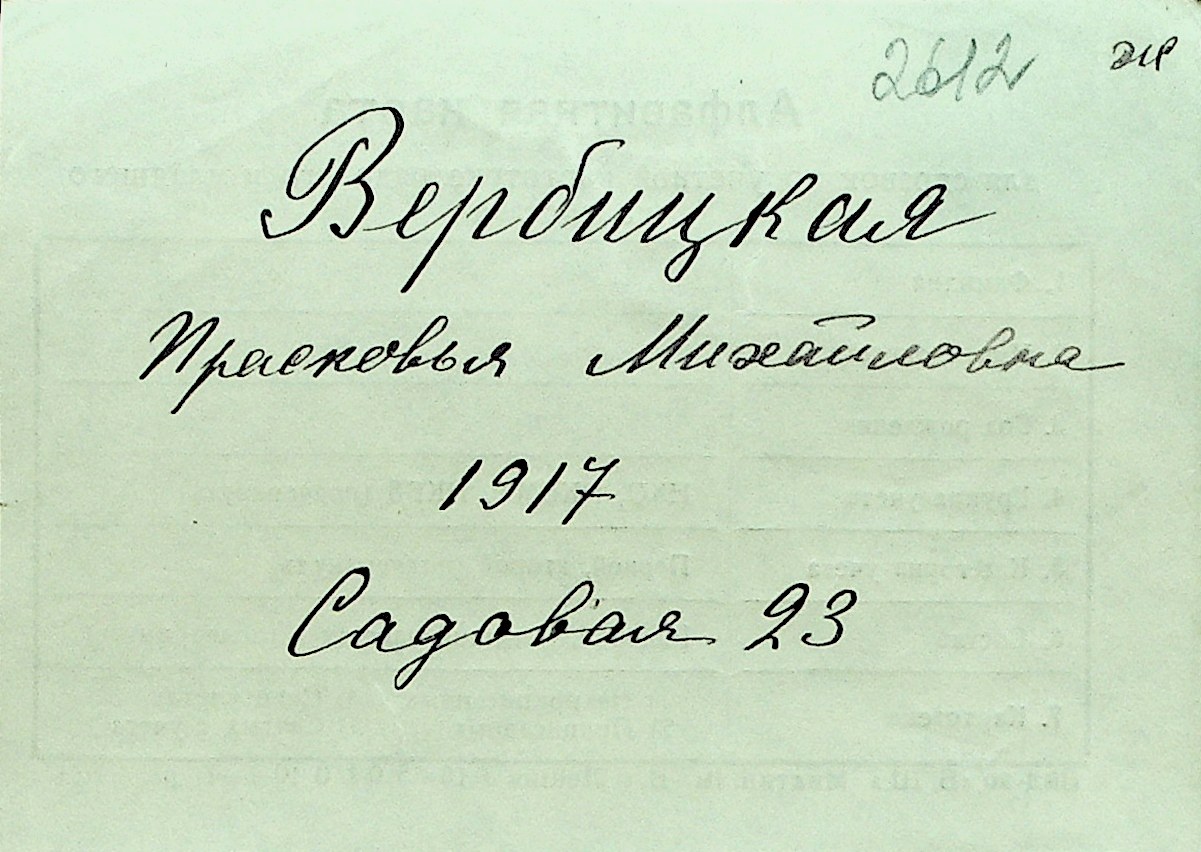 2612 эк
Вербицкая
Прасковья Михайловна
1917
Садовая 23